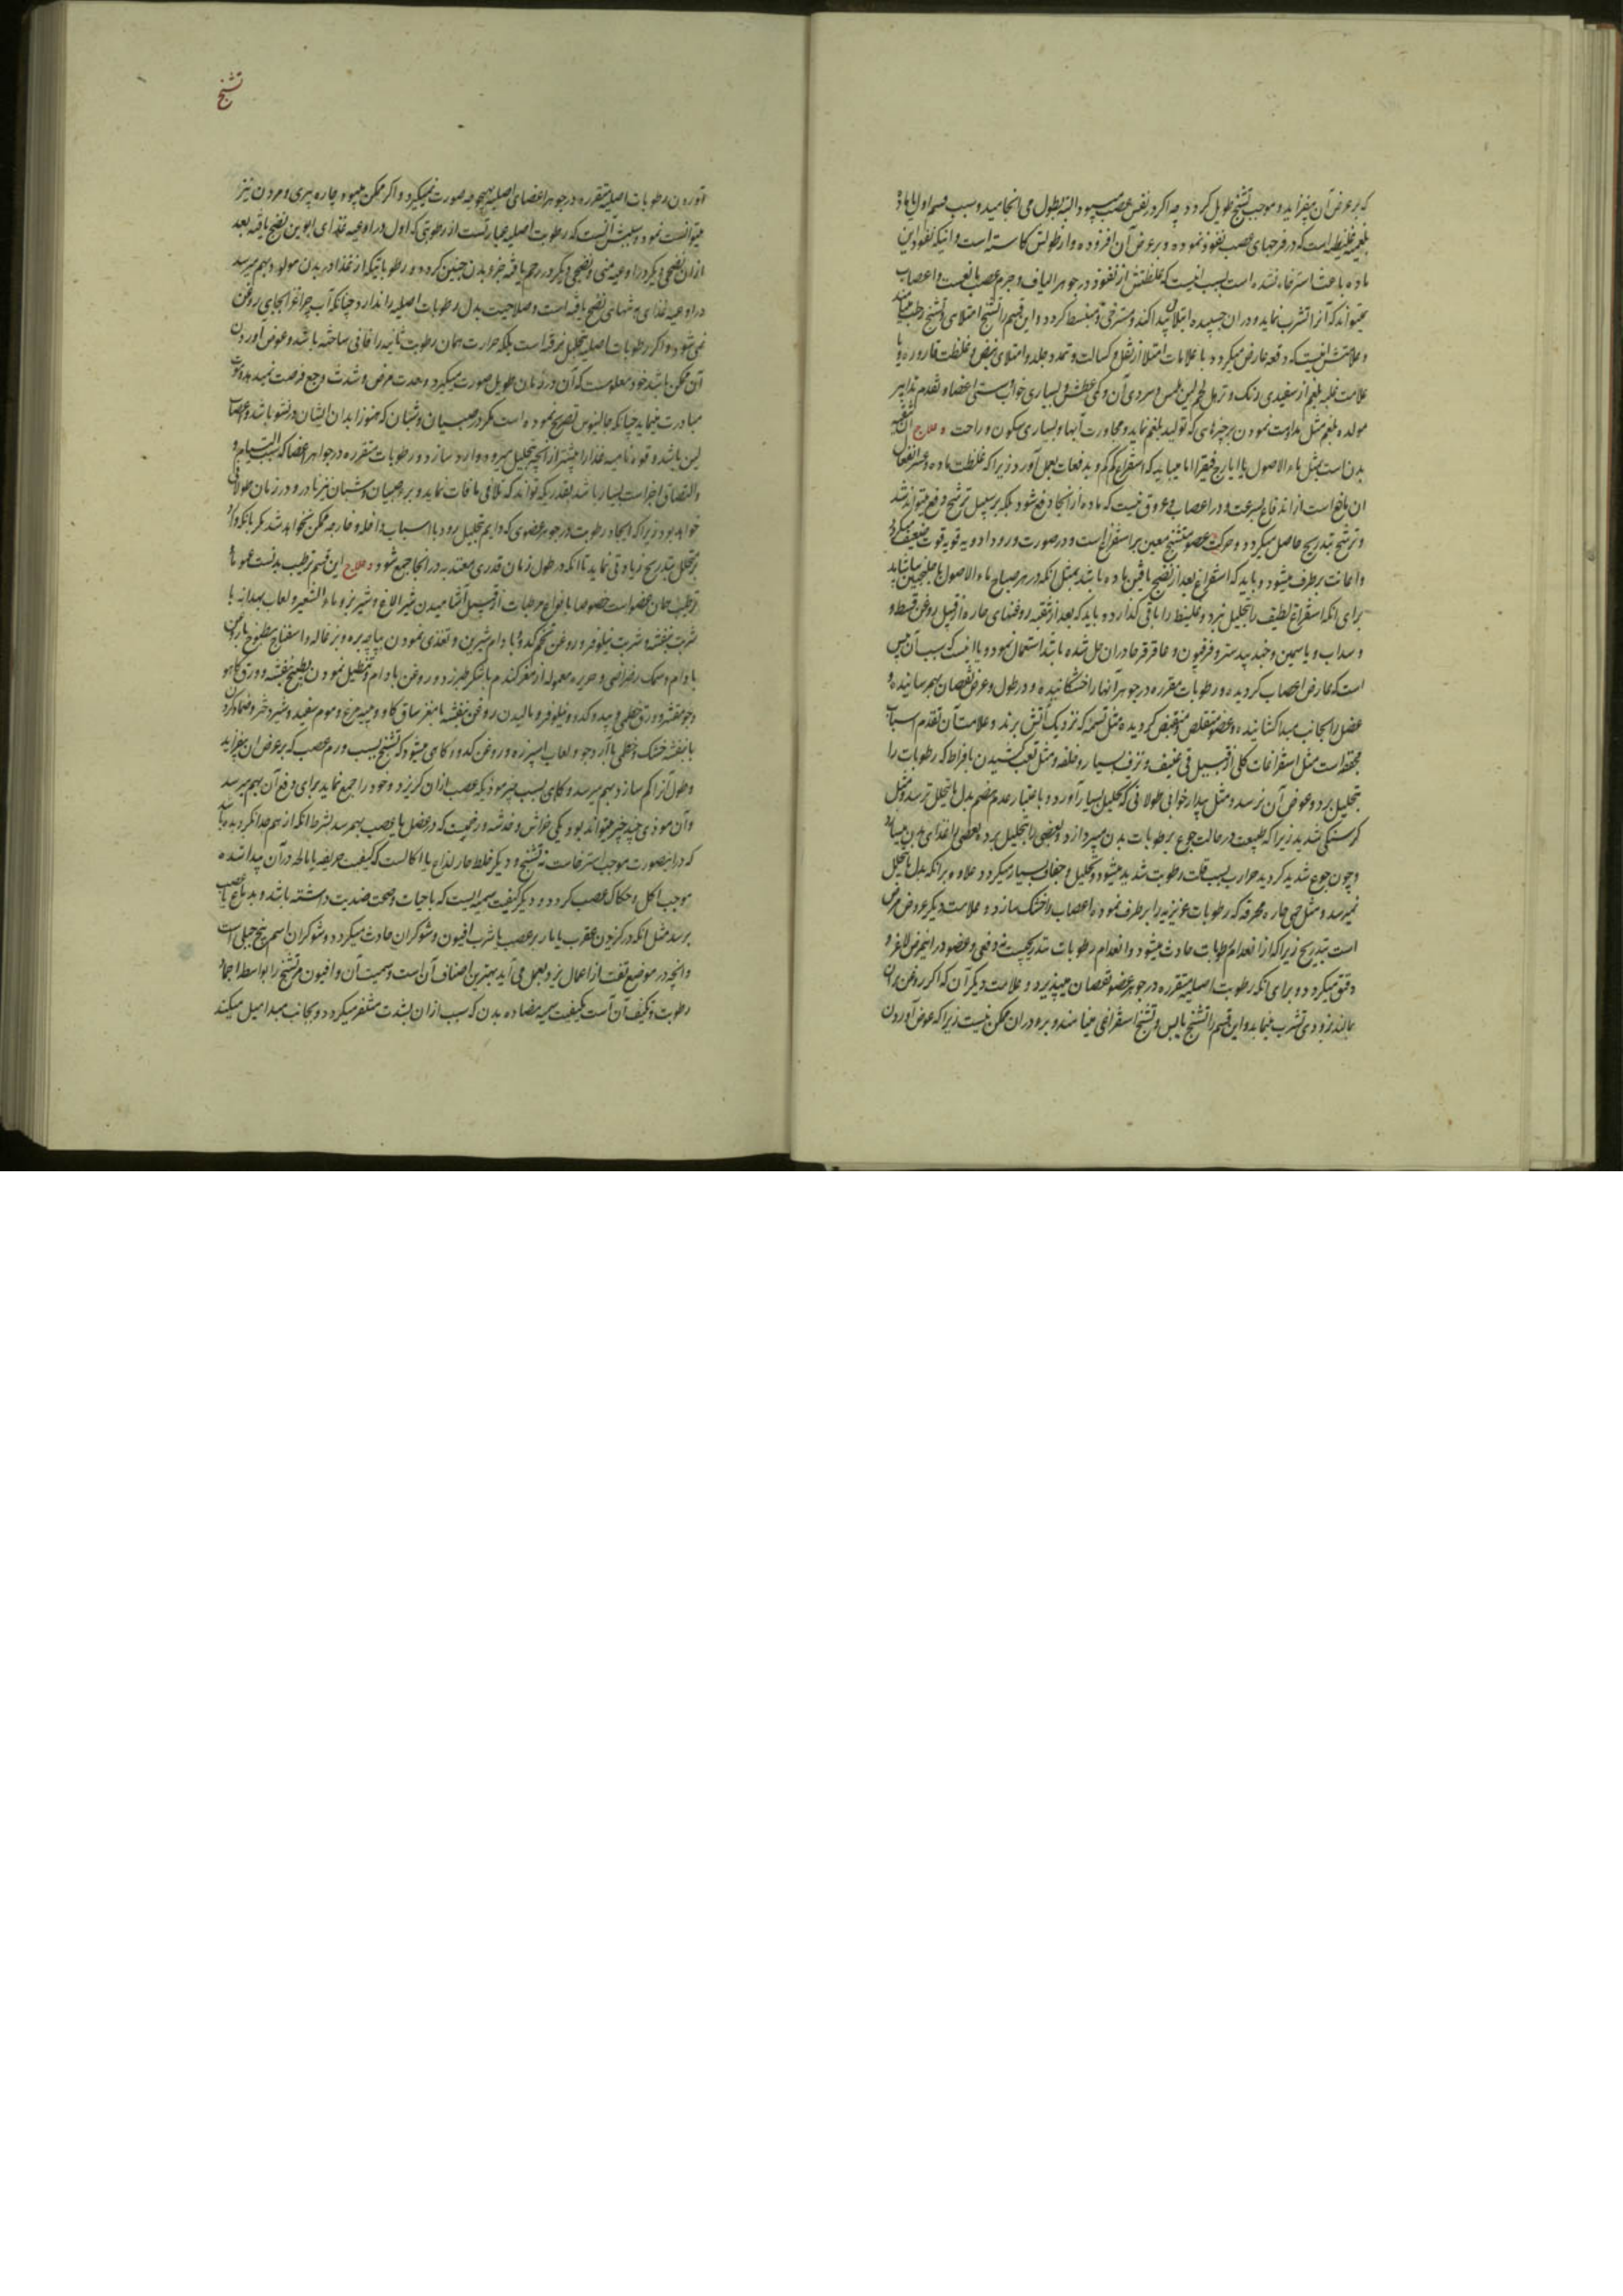 که بر عرض آن بیفزاید و موجب تشنج طویل کردد چه اکر در نفس عصب میبود البته بطول می انجامید و سبب قسم اول یا ماده
بلغمیه غلیظه است که در فرجهای عصب نفوذ نموده و بر عرض آن افزوده و از طولش کاسته است و اینکه نفوذ این
ماده باعث استرخاء نشده است بسبب اینست که غلظتش از نفوذ در جوهر الیاف و جرم عصب مانعست و اعصاب
نمیتواند که آنرا تشرب نماید و در ان چسپیده ابتلال پیدا کند و مسترخی و منبسط کردد و این قسم را تشنج امتلای و تشنج رطب مینامند
و علامتش اینست که دفعه عارض میکردد با علامات امتلا از ثقل و کسالت و تمدد جلد و امتلای نبض و غلظت قاروره و یا
علامت غلبه بلغم از سفیدی رنک و ترهل لحم لین ملمس و سردی آن و کمی عطش و بسیاری خواب و سستی اعضاء و تقدم تدابیر
مولده بلغم مثل مداومت نمودن بر چیزهای که تولید بلغم نماید و مجاورت آبها و بسیاری سکون و راحت ه علاج آن تنقیه
بدن است بمثل ماء الاصول یا ایارج فیقرا اما میباید که استفراغ کم کم و بدفعات بعمل آورد زیرا که غلظت ماده و عسر انفعال
ان مانع است از اندفاع بسرعت و در اعصاب عروق نیست که ماده از انجا دفع شود بلکه بر سبیل ترشح دفع میتواند شد
و ترشح بتدریج حاصل میکردد و حرکت عضو متشنج معین بر استفراغ است و در صورت ورود ادویه قویه قوت ضعیف میکردد
و اعانت برطرف میشود و باید که استفراغ بعد از نضج یافتن ماده باشد بمثل انکه در هر صباح ماء الاصول با جلنجبین بیاشامد
برای انکه استفراغ لطیف را بتحلیل میبرد و غلیظ را باقی کذارد و باید که بعد از تنقیه روغنهای حاره از قبیل روغن قسط و
و سداب و یاسمین و جند بیدستر و فرفیون و عاقرقرحا در ان حل شده باشد استعمال نمود و یا اینست که سبب آن یبس
است که عارض اعصاب کردیده و رطوبات مقرره در جوهر آنها را خشکانیده و در طول و عرض نقصان بهم رسانیده و
عضل را بجانب مبدا کشانیده و عضو متقلص و منقبض کردیده مثل تسمه که نزدیک آتش برند و علامت آن تقدم اسباب
مجففه است مثل استفراغات کلی از قبیل قی عنیف و نزف بسیار و خلفه و مثل تعب کشیدن بافراط که رطوبات را
بتحلیل برد و عوض آن نرسد و مثل بیدارخوابی طولانی که تحلیل بسیار آورد و باعتبار عدم هضم بدل ما یتحلل نرسد و مثل
کرسنکی شدید زیرا که طبیعت در حالت جوع برطوبات بدن میپردازد و بعضی را بتحلیل برده بعضی را غذای بدن میسازد
و چون جوع شدید کردید حرارت بسبب قلت رطوبت شدید میشود و تحلیل و جفاف بسیار میکردد و علاوه بر انکه بدل ما یتحلل
نمیرسد و مثل حمی حاره محرقه که رطوبات غریزیه را برطرف نموده اعصاب را خشک سازد و علامت دیکر عروض مرض
است بتدریج زیرا که از انعدام رطوبات حادث میشود و انعدام رطوبات بتدریجست نه دفعی و عضو در این مرض لاغر و
دقیق میکردد و برای انکه رطوبت اصلیه متقرره در جوهر عضو نقصان میپذیرد و علامت دیکر آن که اکر روغن بران
بمالند بزودی تشرب مینماید و این قسم را تشنج یابس و تشنج استفراغی مینامند و برء دران ممکن نیست زیرا که عوض آوردن
تشنج
آوردن رطوبات اصلیه متقرره در جوهر اعضای اصلیه بهیچ وجه صورت نمیکیرد و اکر ممکن میبود چاره پیری و مردن نیز
میتوانست نمود و سببش آنست که رطوبت اصلیه عبارتست از رطوبتی که اول در اوعیه غذای ابوین نضج یافته بعد
ازان نضجی دیکر در اوعیه منی و نضجی دیکر در رحم یافته جزو بدن جنین کردد و رطوباتیکه از غذا در بدن مولود بهم میرسد
در اوعیه غذای تنها نضج یافته است و صلاحیت بدل رطوبات اصلیه را ندارد چنانکه آب چراغ را بجای روغن
نمی شود و اکر رطوبات اصلیه بتحلیل نرفته است بلکه حرارت همان رطوبت ثانیه را فانی ساخته باشد و عوض آوردن
آن ممکن باشد خود معلومست که آن در زمان طویل صورت میکیرد و حدت مرض و شدت وجع فرصت نمیدهد و موت
مبادرت مینماید چنانکه جالینوس تصریح نموده است مکر در صبیان و شبان که هنوز ابدان ایشان در نشو باشد و اعصاب
لین باشد و قوه نامیه غذا را بیشتر از انچه بتحلیل میرود وارد سازد و رطوبات متقرره در جواهر اعضا که التیام و
والتصاق اجزاست بسیار باشد بقدریکه تواند که تلافی مافات نماید و برء صبیان و شبان نیز نادر و در زمان طولانی
خواهد بود زیرا که ایجاد رطوبت در جوهر عضوی که دایم بتحلیل رود با اسباب داخله و خارجه ممکن نخواهد شد مکر بانکه وارد
بر متحلل بتدریج زیادتی نماید تا انکه در طول زمان قدری معتد به در انجا جمع شود ه علاج این قسم ترطیب بدنست عموما و
ترطیب همان عضو است خصوصا بانواع مرطبات از قبیل آشامیدن شیر الاغ و شیر بز و ماء الشعیر و لعاب بهدانه با
شربت بنفشه و شربت نیلوفر و روغن تخم کدو و بادام شیرین و تغذی نمودن بپاچه بره و بزغاله و اسفناج مطبوخ با روغن
بادام و سمک رضراضی و حریره معموله از مغز کندم با شکر طبرزد و روغن بادام و تنطیل نمودن بطبیخ بنفشه و ورق کاهو
و جو مقشر و ورق خطمی و بید و کدو و نیلوفر و مالیدن روغن بنفشه با مغز ساق کاو و پیه مرغ و موم سفید و شیر دختر و ضماد کردن
با بنفشه خشک و خطمی با آرد جو و لعاب اسپرزه و روغن کدو و کاهی میشود که تشنج بسبب ورم عصب که بر عرض ان بیفزاید
و طول آنرا کم سازد بهم میرسد و کاهی بسبب چیز موذیکه عصب ازان کریزد و خود را جمع نماید برای دفع آن بهم میرسد
و آن موذی چند چیز میتواند بود یکی خراش و خدشه و زخمیست که در عضل یا عصب بهم رسد بشرط انکه از هم جدا نکردیده باشد
که در اینصورت موجب استرخاست نه تشنج و دیکر خلط حار لذاع یا اکالست که کیفیت حریفه یا مالحه در آن پیدا شده
موجب اکل و حکاک عصب کردد و دیکر کیفیت سمیه ایست که با حیات و صحت ضدیت داشته باشد و بدماغ یا عصب
برسد مثل انکه در کزیدن عقرب یا مار بر عصب یا شرب افیون و شوکران حادث میکردد و شوکران اسم بیخ جبلی است
وانچه در موضع تفت از اعمال یزد بعمل می آید بهترین اصناف آن است و سمیت آن و افیون مر تشنج را بواسطه اجماد
رطوبت و تکثیف آن است بکیفیت سمیه مضاده بدن که سبب ازان بشدت متنفر میکردد و بجانب مبدا میل میکند